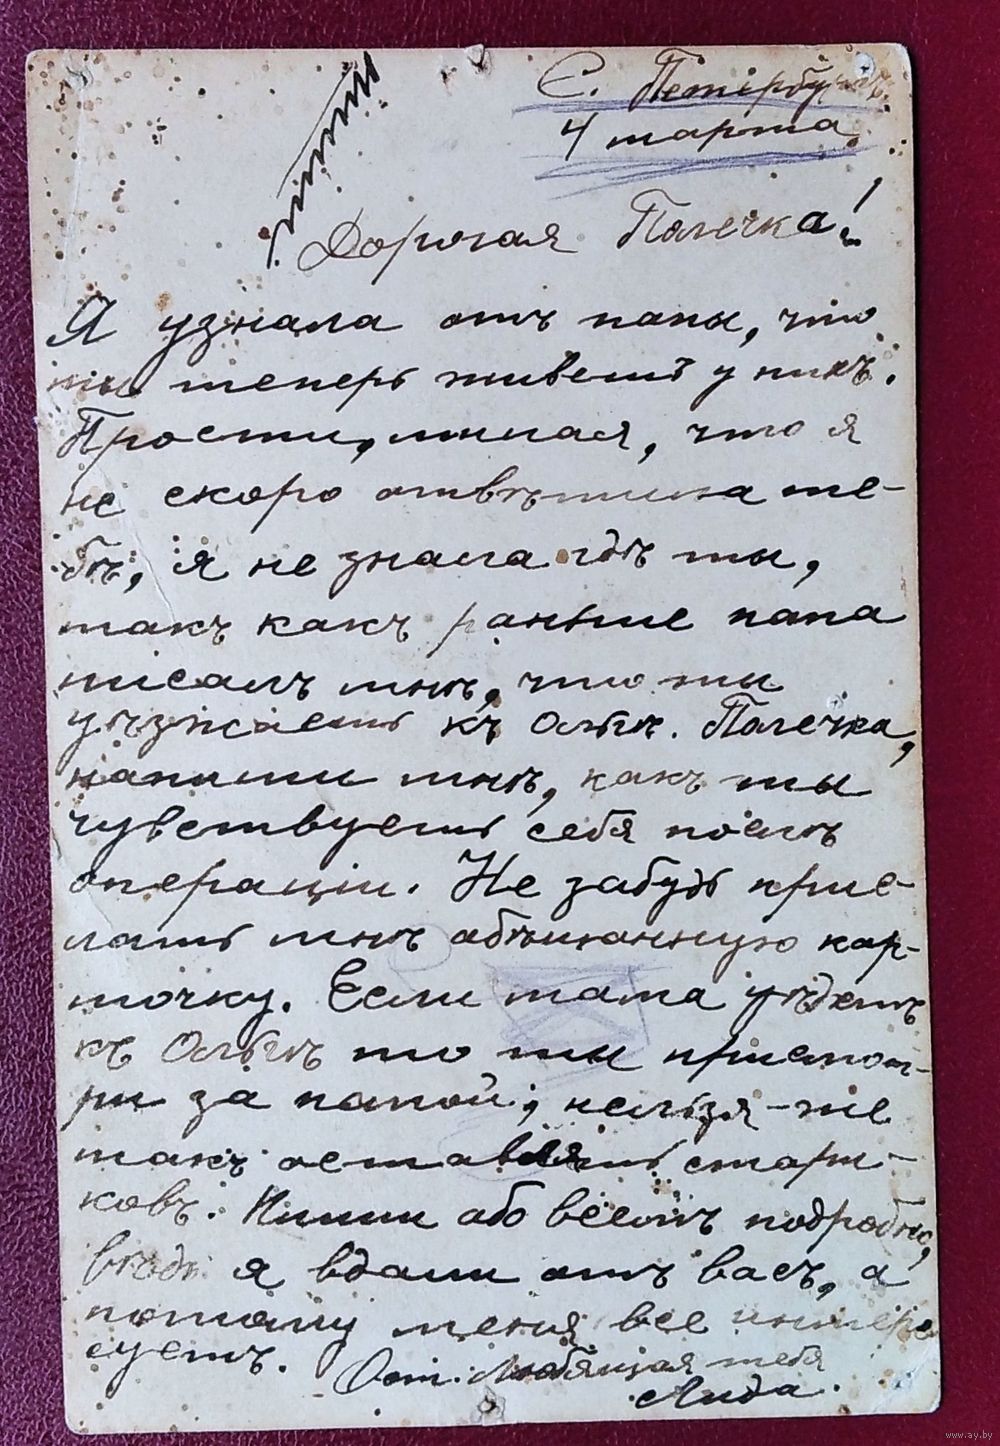 С. Петербургъ.
4 марта
Дорогая Полечка!
Я узнала отъ папы, что
ты теперь живешь у нихъ.
Прости, милая, что я
не скоро отвѣтила те-
бѣ, я не знала гдѣ ты,
такъ какъ раньше папа
писалъ мнѣ, что ты
уѣзжаешь къ Ольгѣ. Полечка,
напиши мнѣ, какъ ты
чувствуешь себя послѣ
операціи. Не забудь прис-
лать мнѣ обѣщанную кар-
точку. Если мама уѣдетъ
къ Ольгѣ то ты присмот-
ри за папой, нельзя-же
такъ оставлять стари-
ковъ. Пиши обо всемъ подробно,
вѣдь я вдали отъ васъ, а
потому меня все интере
суетъ.
Ост. Любящая тебя
Лида.
www.ay.by